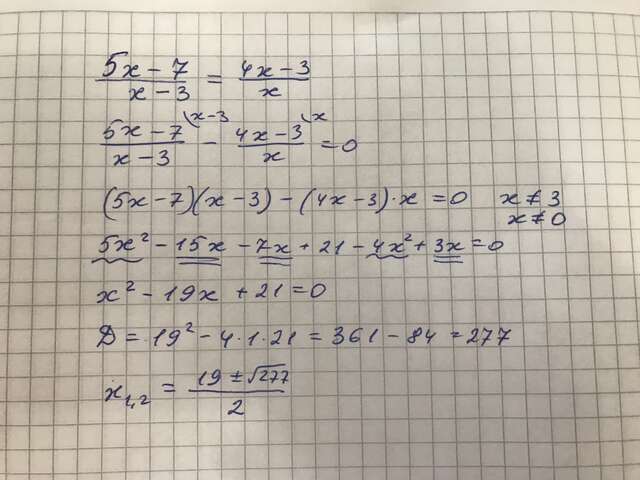 5x - 7 / x - 3 = 4x - 3 / x
5x - 7 (x-3 / x - 3 - 4x - 3 (x / x = 0
(5x - 7)(x - 3) - (4x - 3) · x = 0 x ≠ 3
x ≠ 0
5x² - 15x - 7x + 21 - 4x² + 3x = 0
x² - 19x + 21 = 0
D = 19² - 4 · 1 · 21 = 361 - 84 = 277
x₁,₂ = 19 ± √277 / 2